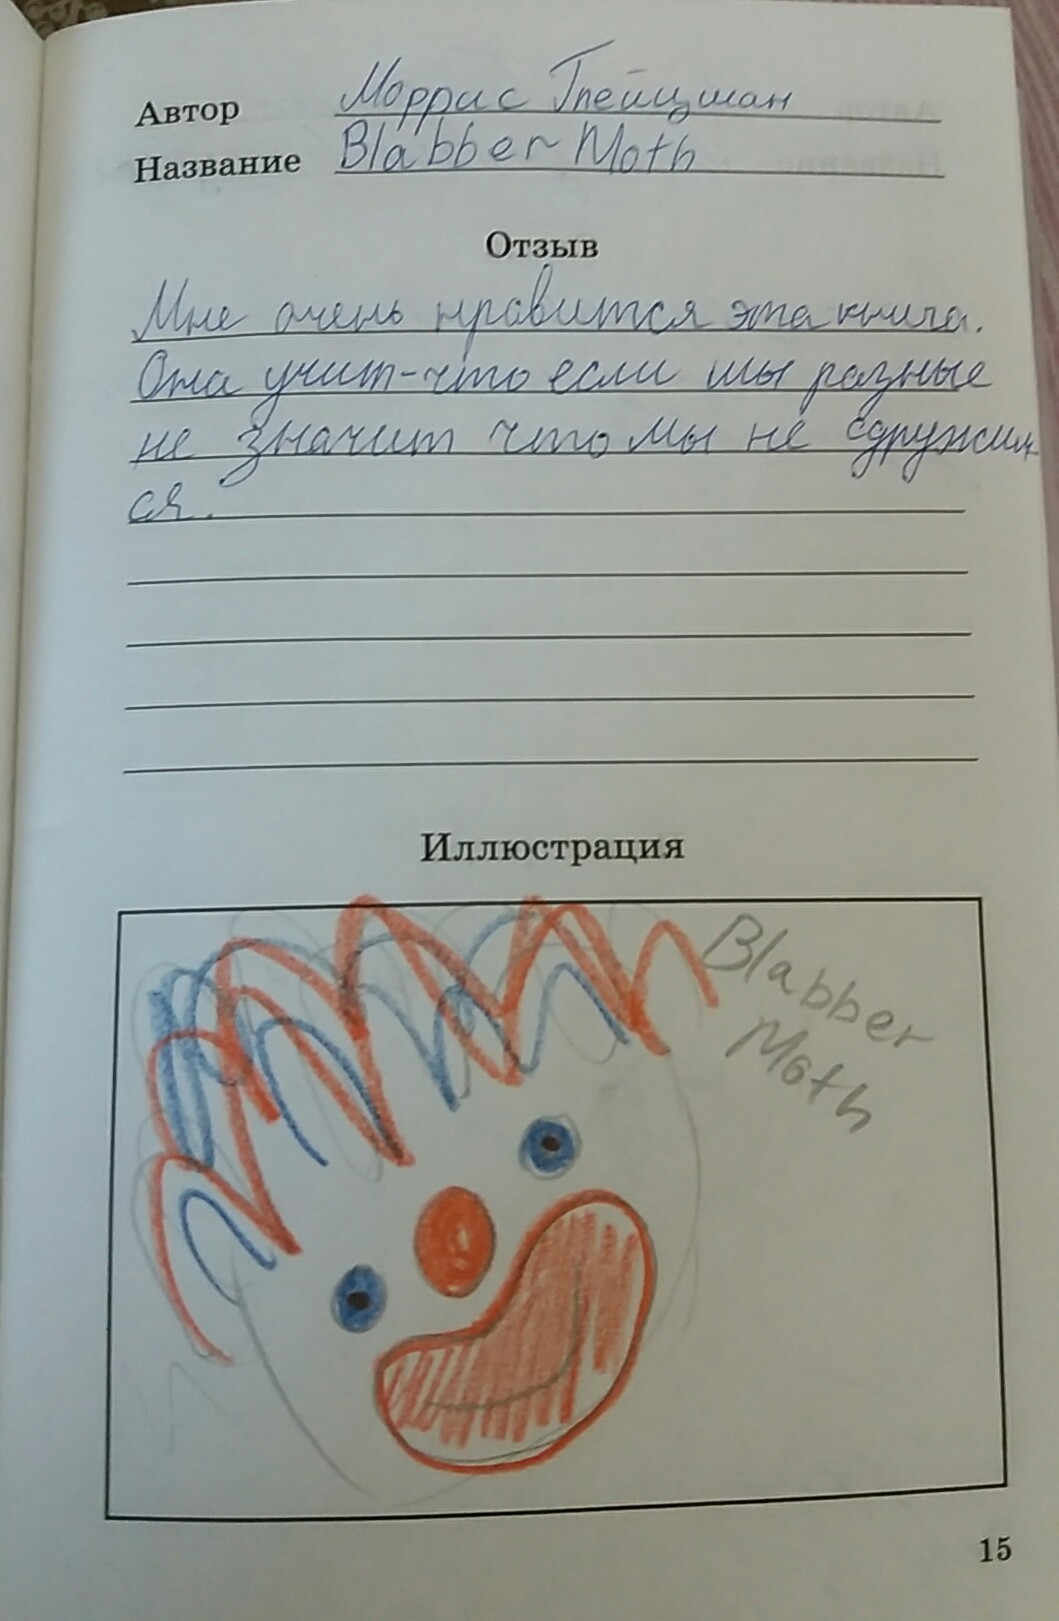 Автор Моррис Глейцман
Название Blabber Moth
Отзыв
Мне очень нравится эта книга.
Она учит-что если мы разные
не значит что мы не сдружим
ся.
Иллюстрация
Blabber
Moth
15